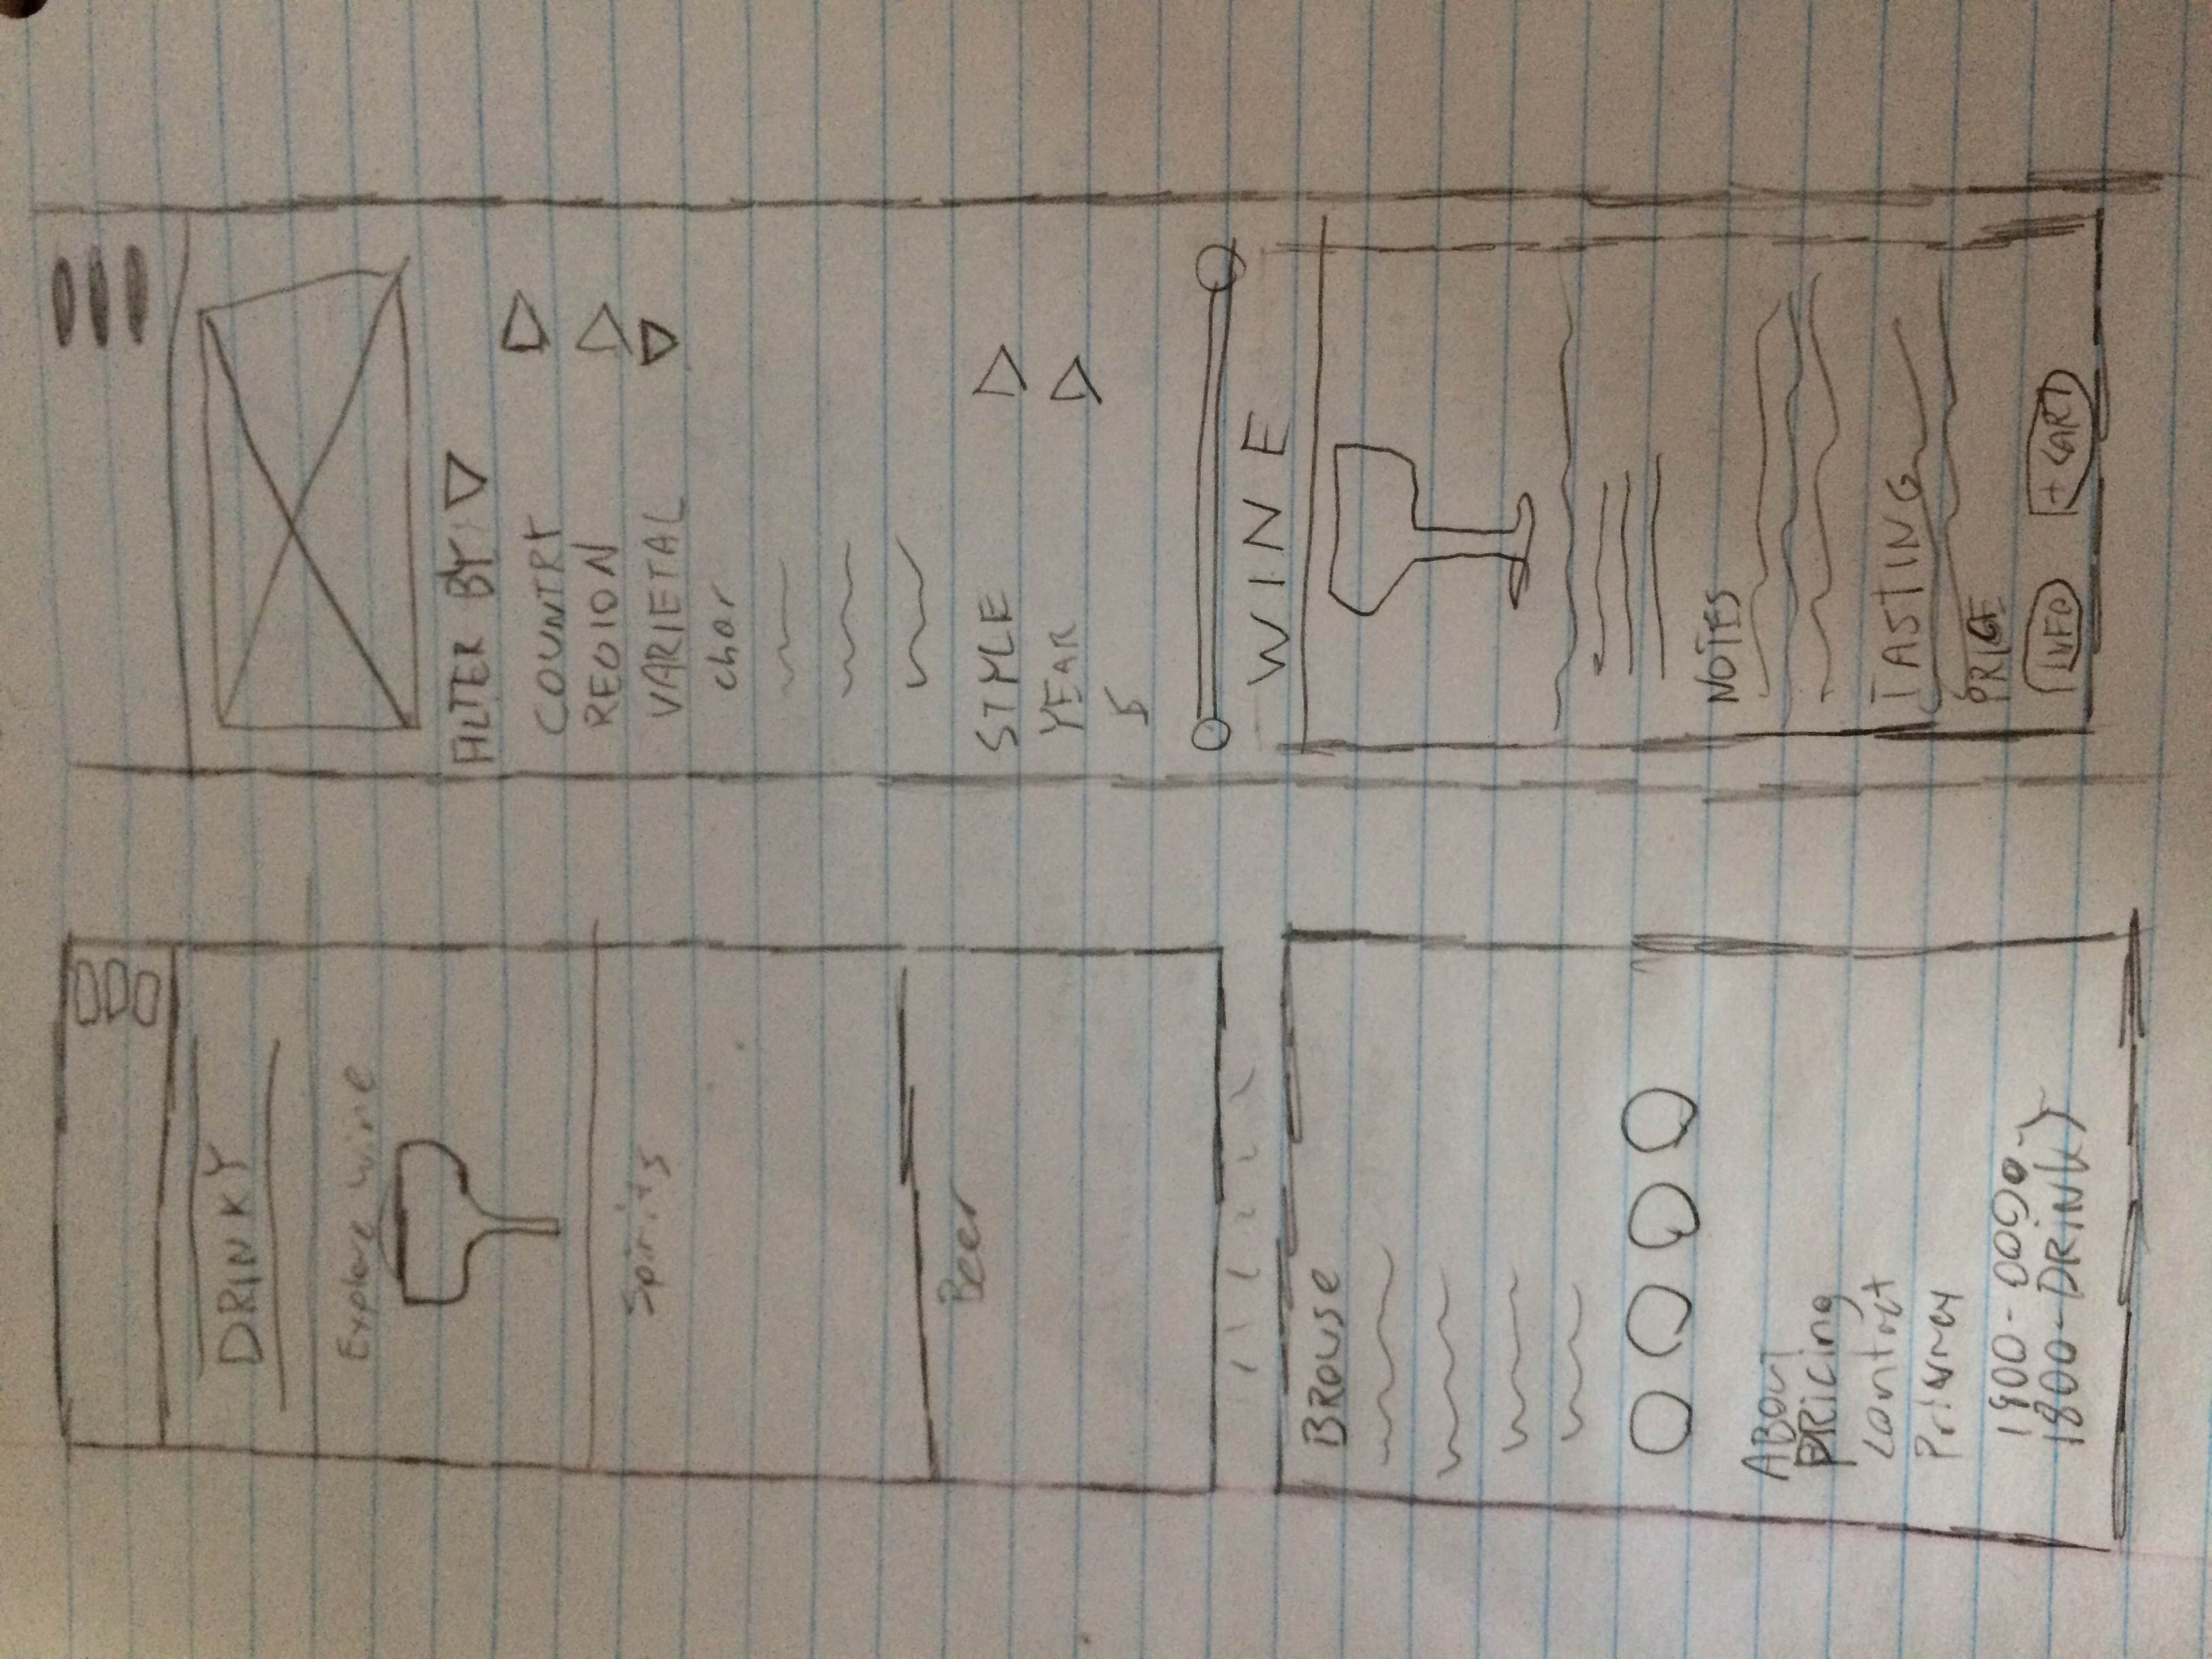 DRINKY
Explore wine
Spirits
Beer
BROWSe
ABOUT
PRicing
contact
Privacy
1900-0000
1800-DRINK
FILTER BY
COUNTRY
REGION
VARIETAL
char
STYLE
YEAR
$
WINE
NOTES
TASTING
PRICE
INFO
+ CART